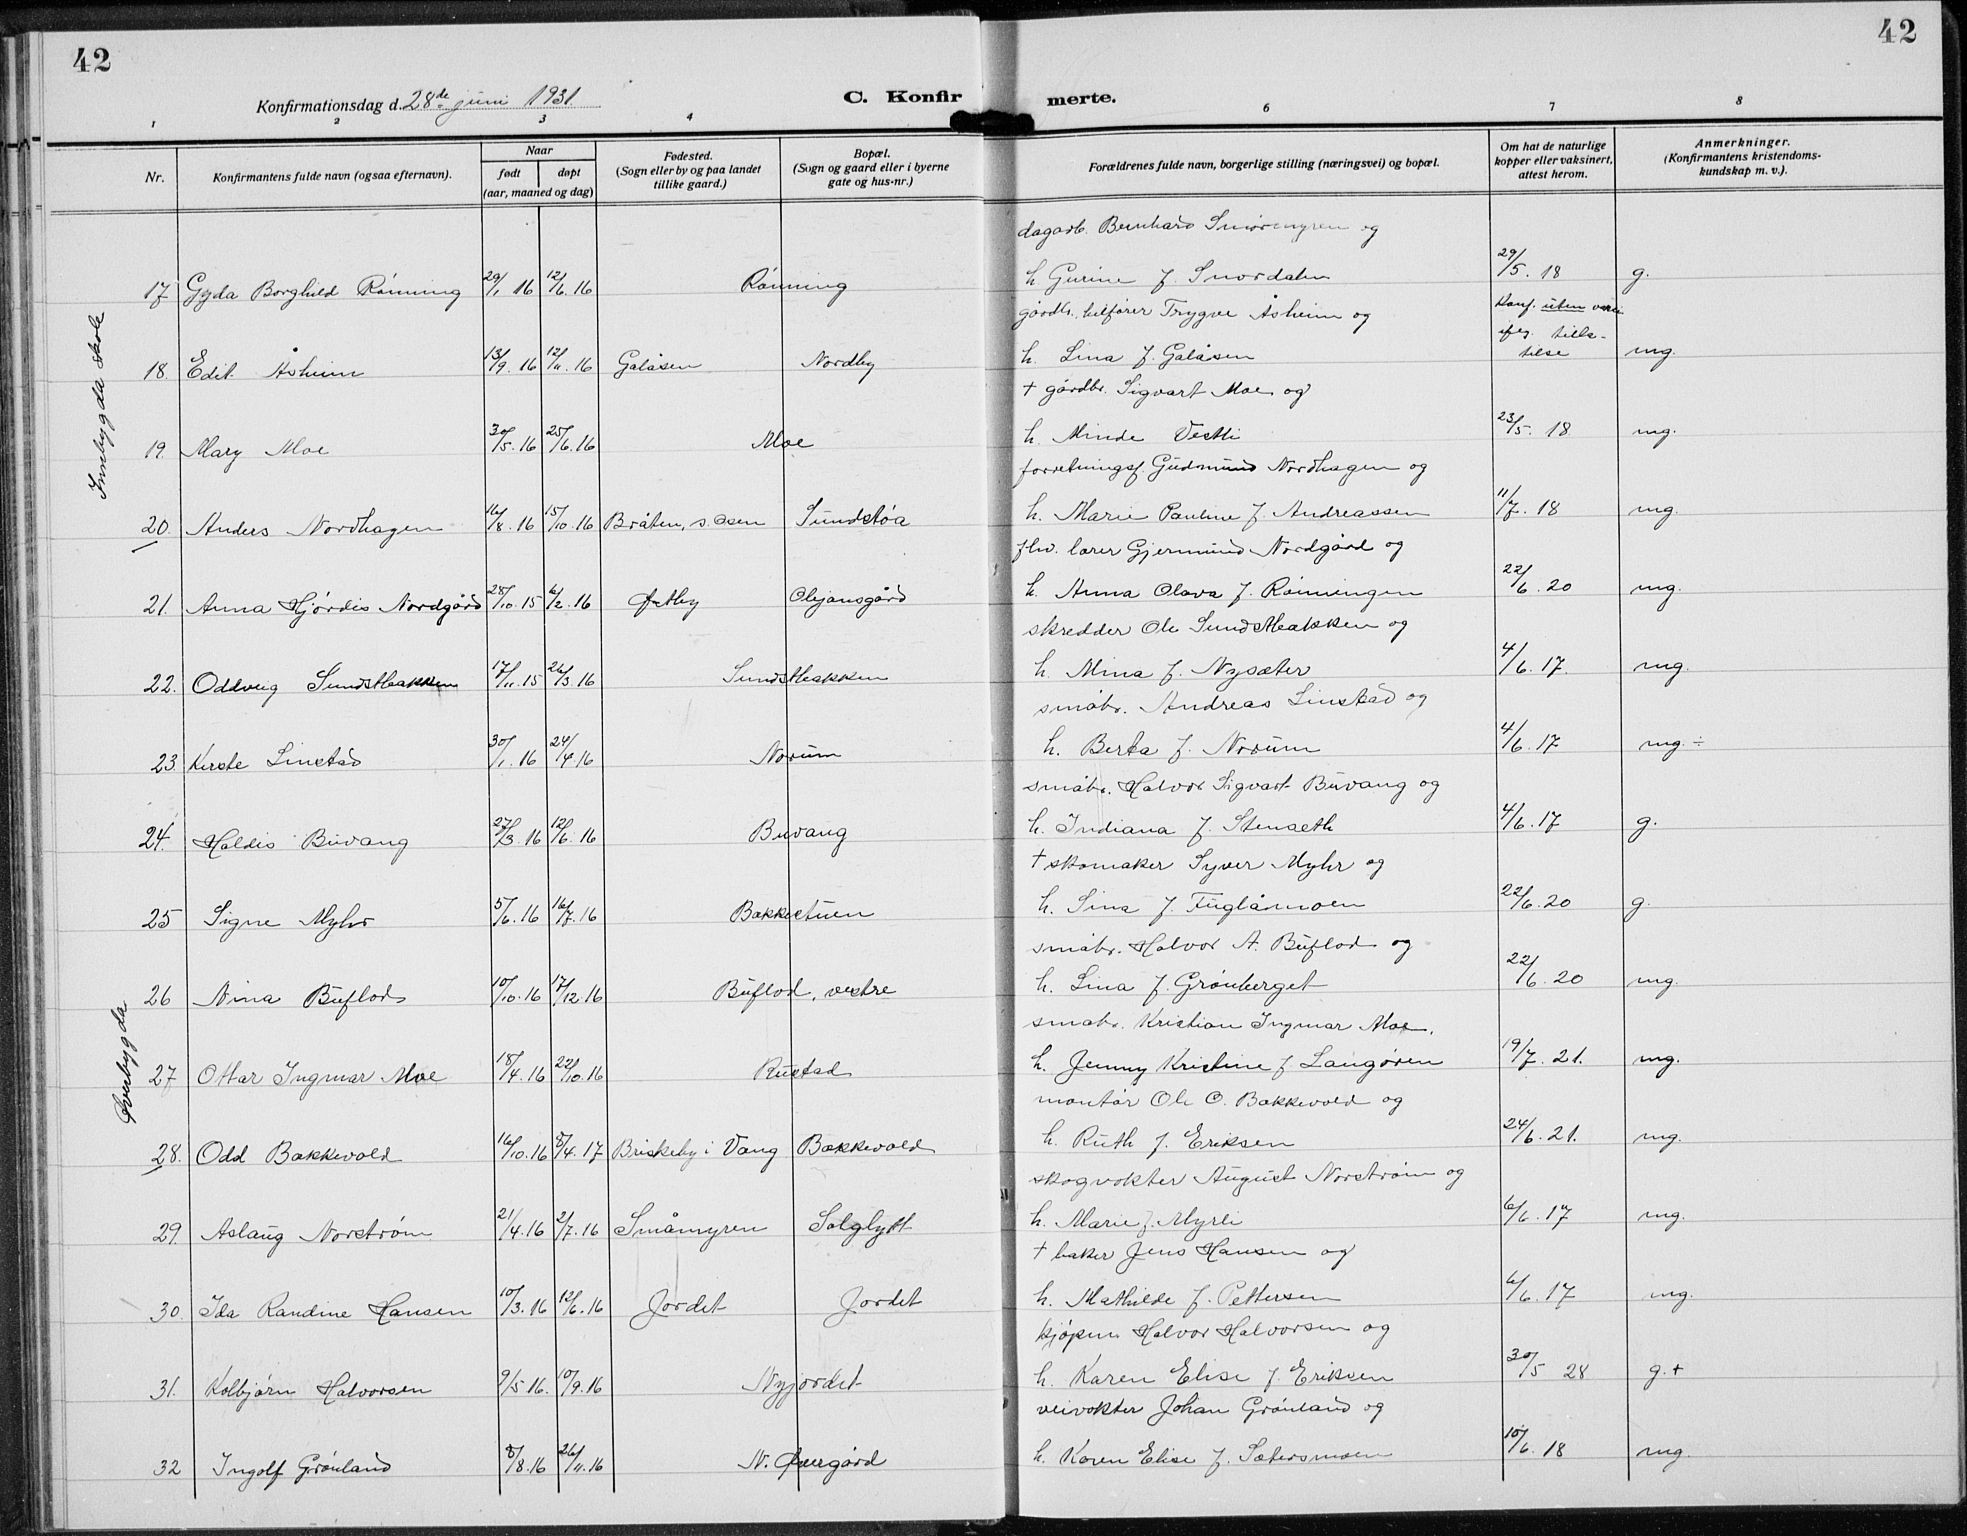 42
42
Konfirmationsdag d. 28de juni 1931
C. Konfirmerte.
1 2 3 4 6 7 8
Nr.
Konfirmantens fulde navn (ogsaa efternavn).
Naar
født døpt
(aar, maaned og dag)
Fødested.
(Sogn eller by og paa landet
tillike gaard.)
Bopæl.
(Sogn og gaard eller i byerne
gate og hus-nr.)
Forældrenes fulde navn, borgerlige stilling (næringsvei) og bopæl.
Om hat de naturlige
kopper eller vaksinert,
attest herom.
Anmerkninger.
(Konfirmantens kristendoms-
kundskap m. v.).
Innbygda skole
dagarb. Bernhard Smørmyren og
17 Gyda Borghild Rønning 29/1 16 12/6. 16 Rønning h Gurine f. Snordalen 29/5. 18 g.
gårdbr. Trygve Åsheim og Konf. uten
18. Edit Åsheim 13/9. 16 12/11. 16 Galåsen Nordby h. Lina f. Galåsen mg.
† gårdbr. Sigvart Moe og
19. Mary Moe 30/5. 16 25/6. 16 Moe h. Minde Vestli 23/5. 18 mg.
forretningsf. Gudmund Nordhagen og
20. Anders Nordhagen 16/8. 16 15/10. 16 Bråten, s. osen Sundstøa h. Marie Pauline f. Andreassen 11/7. 18 mg.
fhv. lærer Gjermund Nordgård og
21. Anna Hjördis Nordgård 28/10. 15 6/2. 16 Østby Olejansgård h. Anna Olava f. Rønningen 22/6. 20 mg.
skredder Ole Sundstbakken og
22. Oddveig Sundstbakken 17/11. 15 26/3. 16 Sundstbakken h. Mina f. Nysæter 4/6. 17. mg.
småbr. Andreas Linstad og
23. Kirste Linstad 30/1. 16 24/4 16 Norum h. Berta f. Norum 4/6. 17 mg. ÷
småbr. Halvor Sigvart Buvang og
24. Haldis Buvang 27/3. 16 12/6. 16 Buvang h. Indiana f. Stenseth 4/6. 17 g.
† skomaker Syver Myhr og
25 Signe Myhr 5/6. 16 16/7. 16 Bakkestuen h. Sina f. Fuglåmoen 22/6. 20 g.
Øverbygda
småbr. Halvor A. Buflod og
26 Nina Buflod 10/10. 16 17/12 16 Buflod, vestre h. Lina f. Grønberget 22/6. 20 mg.
småbr. Kristian Ingmar Moe,
27 Ottar Ingmar Moe 18/4. 16 22/10. 16 Rustad h. Jenny Kristine f Langøren 19/7. 21. mg.
montør Ole O. Bakkevold og
28. Odd Bakkevold 16/10. 16 8/4. 17 Briskeby i Vang Bakkevold h. Ruth f. Eriksen 24/6. 21. mg.
skogvokter August Norstrøm og
29. Aslaug Norstrøm 21/4. 16 2/7. 16 Småmyren Solglytt h. Marie f. Myrli 6/6. 17 mg.
† baker Jens Hansen og
30. Ida Randine Hansen 10/3. 16 12/6. 16 Jordet Jordet h. Mathilde f. Pettersen 6/6. 17 mg.
kjøpm. Halvor Halvorsen og
31. Kolbjørn Halvorsen 9/5. 16. 10/9. 16 Nyjordet h. Karen Elise f. Eriksen 30/5 28 g. +
veivokter Johan Grønland og
32 Ingolf Grønland 8/8. 16 26/11. 16 N. Øvergård h. Karen Elise f. Sætersmoen 10/6. 18 mg.